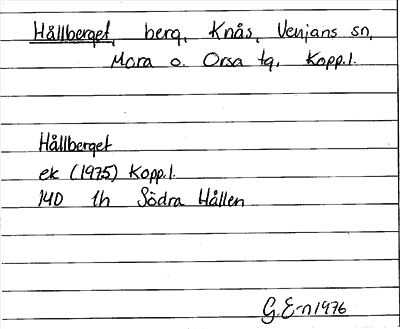 Hållberget, berg, Knås, Venjans sn,
Mora o. Orsa tg, Kopp.l.
Hållberget
ek (1975) Kopp.l.
14D 1h Södra Hållen
G.E-n 1976